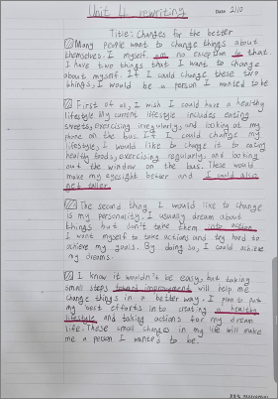 Unit 4 rewriting
Title: Changes for the better
Many people want to change things about
themselves. I myself, no exception to that
I have two things that I want to change
about myself. If I could change these two
things, I would be a person I wanted to be
First of all, I wish I could have a healthy
lifestyle. My current lifestyle includes eating
sweets, exercising irregularly, and looking at my
phone on the bus. If I could change my
lifestyle, I would like to change it to eating
healthy foods, exercising regularly, and looking
out the window on the bus. These would
make my eyesight better and I could also
get taller.
The second thing, I would like to change
is my personality. I usually dream about
things but don't take them into action.
I want myself to take actions and try hard to
achieve my goals. By doing so, I could achieve
my dreams.
I know it wouldn't be easy, but taking
small steps toward improvement will help me
change things in a better way. I plan to put
my best efforts into creating a healthy
lifestyle and taking actions for my dream
life. These small changes in my life will make
me a person I wanted to be.